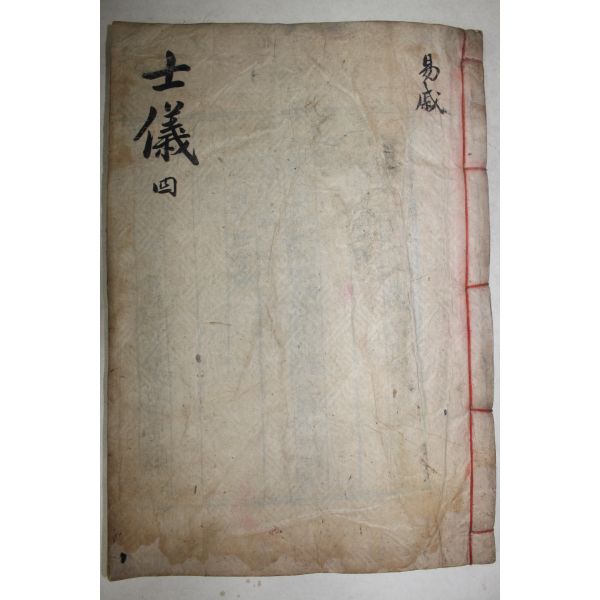 士儀 四
易戚